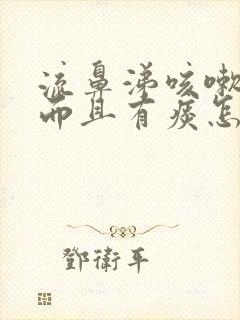 流鼻涕咳嗽
而且有痰怎
鄧衛平